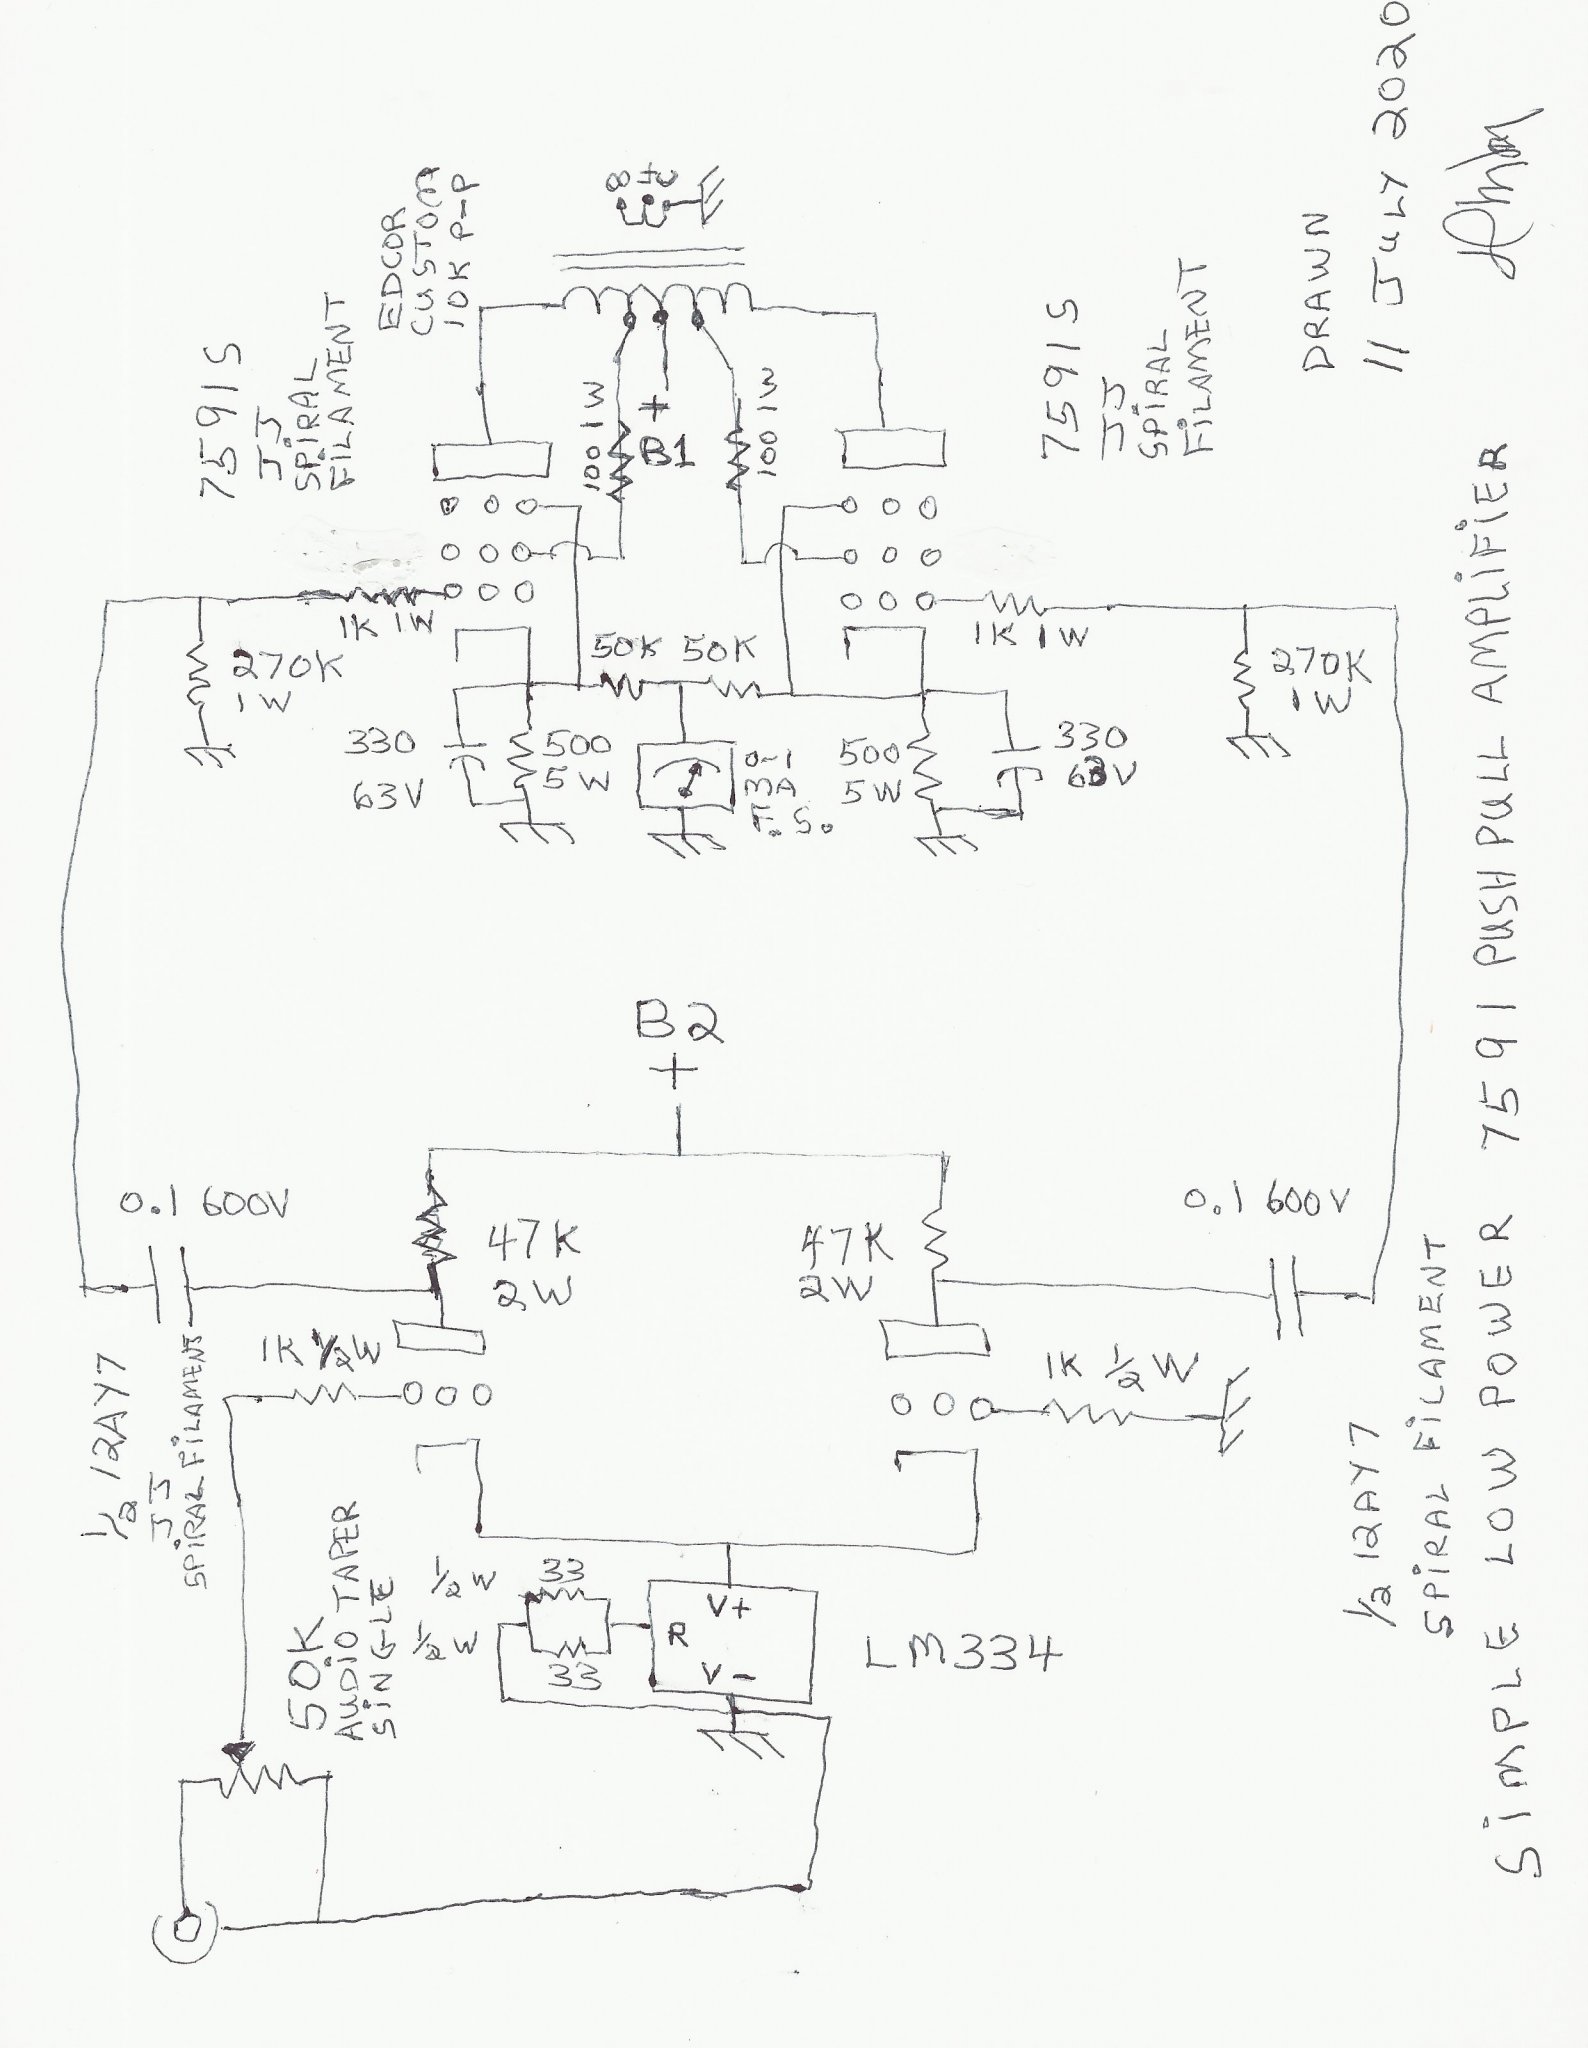 8
4
C
EDCOR
CUSTOM
10K P-P
7591S
JJ
SPIRAL
FILAMENT
100 1W
+
B1
100 1W
7591S
JJ
SPIRAL
FILAMENT
DRAWN
11 JULY 2020
1K 1W
270K
1W
50K 50K
1K 1W
270K
1W
330
63V
500
5W
0-1
MA
F.S.
500
5W
330
63V
B2
+
0.1 600V
47K
2W
47K
2W
0.1 600V
1K 1/2W
1K 1/2 W
1/2 12AY7
JJ
SPIRAL FILAMENT
1/2 12AY7
SPIRAL FILAMENT
50K
AUDIO TAPER
SINGLE
1/2 W
33
1/2 W
33
V+
R
V-
LM334
SIMPLE LOW POWER 7591 PUSH PULL AMPLIFIER